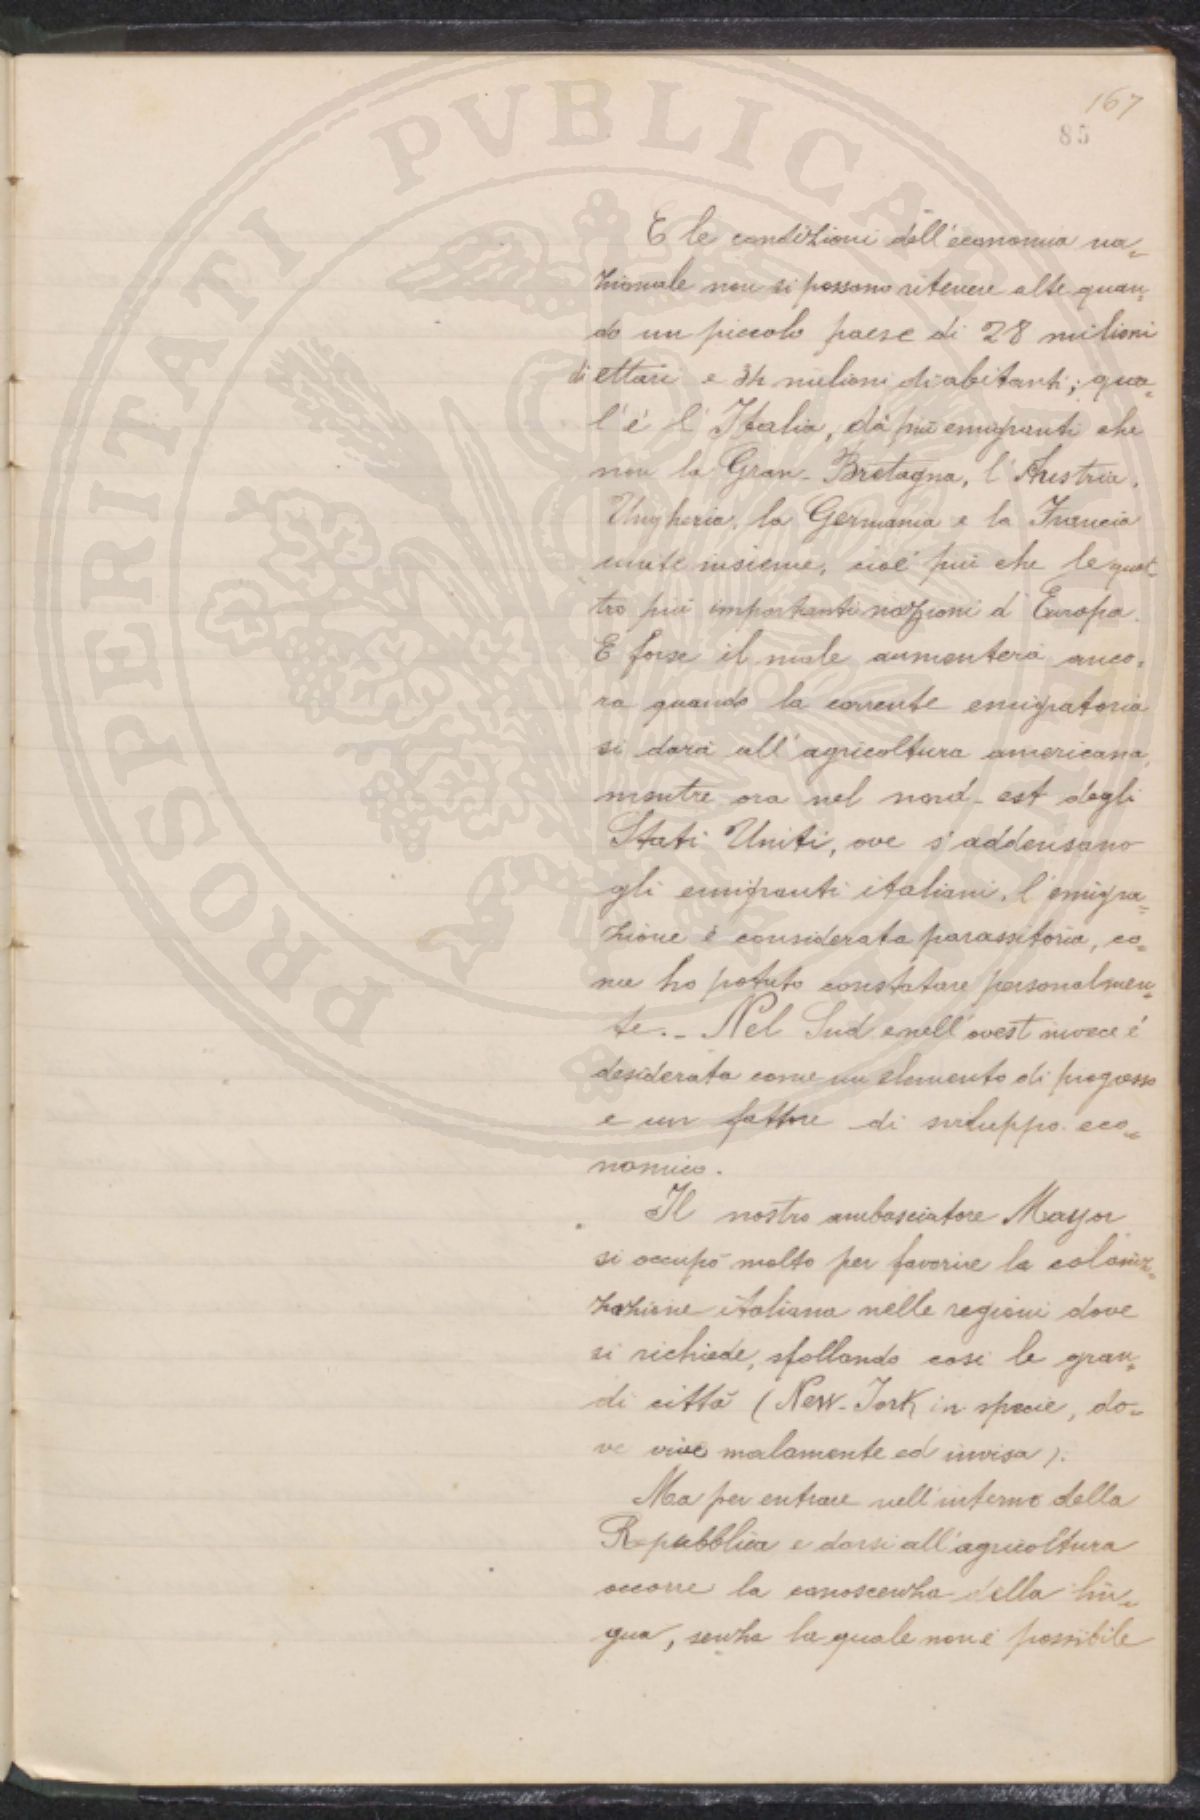 167
85
E le condizioni dell'economia na=
zionale non si possono ritenere alte quan=
do un piccolo paese di 28 milioni
di ettari e 34 milioni di abitanti; qua=
l'è l'Italia, dà più emigranti che
non la Gran-Bretagna, l'Austria-
Ungheria, la Germania e la Francia
unite insieme, cioè più che le quat=
tro più importanti nazioni d'Europa.
E forse il male aumenterà anco=
ra quando la corrente emigratoria
si darà all'agricoltura americana,
mentre ora nel nord-est degli
Stati Uniti, ove s'addensano
gli emigranti italiani, l'emigra=
zione è considerata parassitoria, co=
me ho potuto constatare personalmen=
te.- Nel Sud e nell'ovest invece è
desiderata come un elemento di progresso
e un fattore di sviluppo eco=
nomico.
Il nostro ambasciatore Mayor
si occupò molto per favorire la coloniz=
zazione italiana nelle regioni dove
si richiede, sfollando così le gran=
di città (New-York in specie, do=
ve vive malamente ed invisa).
Ma per entrare nell'interno della
Repubblica e darsi all'agricoltura
occorre la conoscenza della lin=
gua, senza la quale non è possibile
PROSPERITATI PVBLICAE